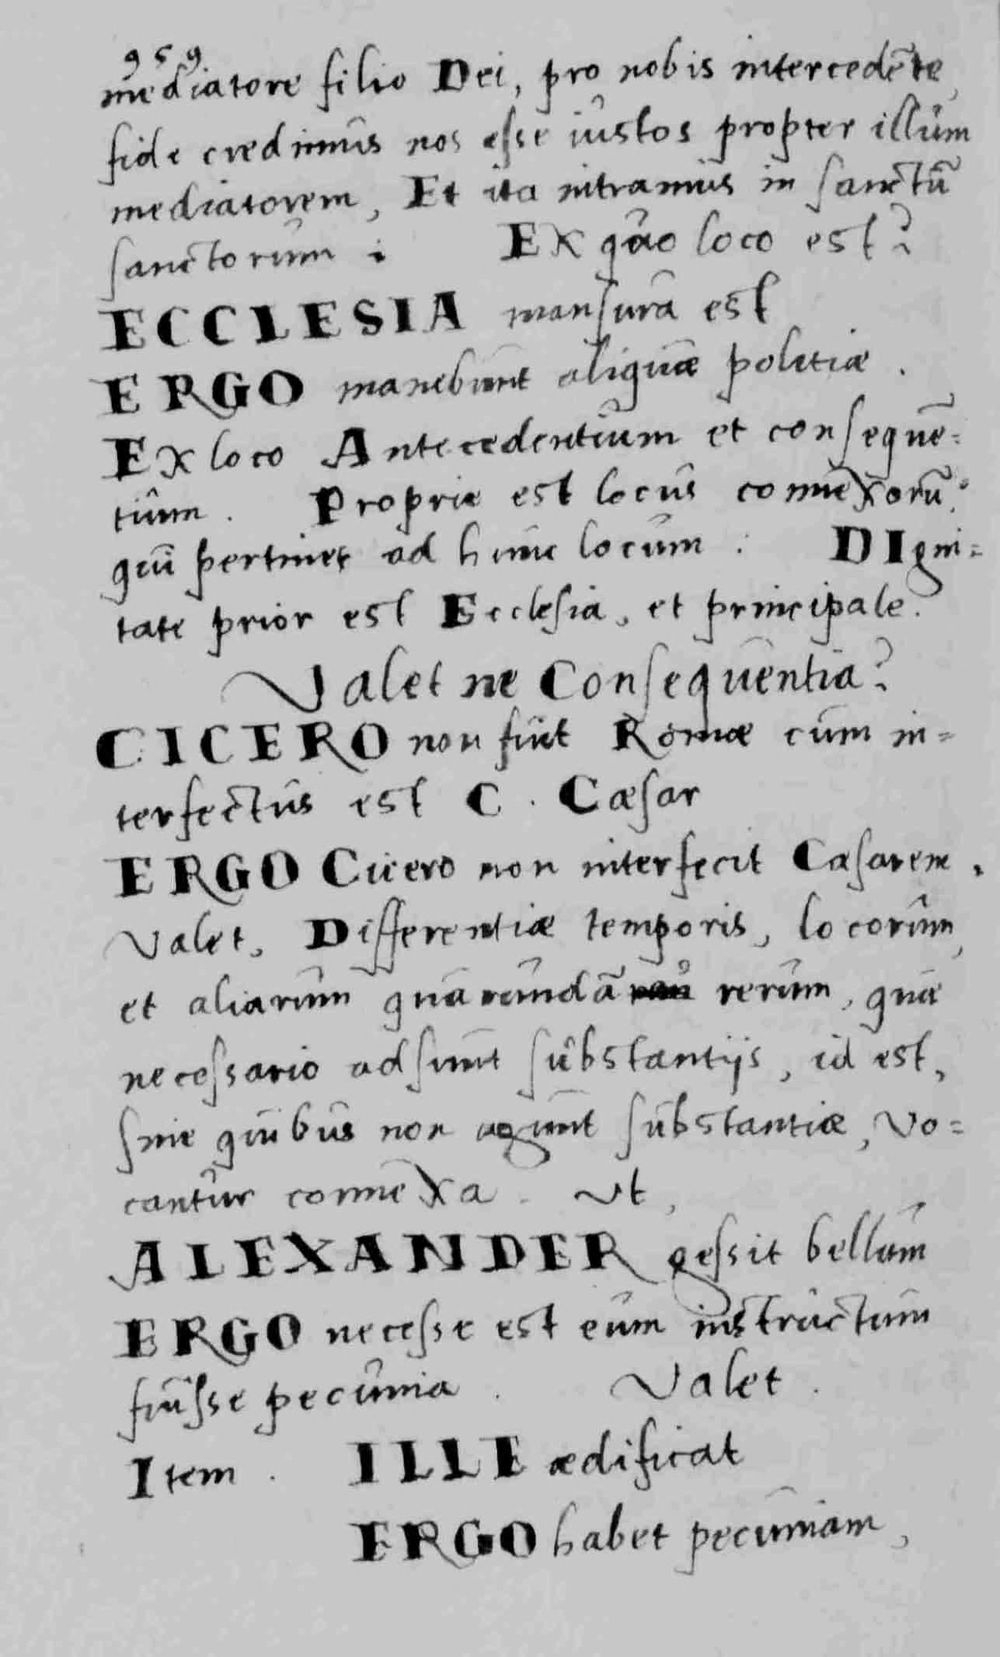 959
mediatore filio Dei, pro nobis intercedēte,
fide credimus nos esse iustos propter illum
mediatorem, Et ita intramus in sanctū
sanctorum : Ex quo loco est?
ECCLESIA mansura est
ERGO manebunt aliquæ politiæ .
Ex loco Antecedentium et consequē=
tium . Proprie est locus connexorū,
qui pertinet ad hunc locum . DIgni=
tate prior est Ecclesia, et principale.
Valet ne Consequentia?
CICERO non fuit Romæ cum in=
terfectus est C. Cæsar
ERGO Cicero non interfecit Cæsarem .
Valet, Differentiæ temporis, locorum,
et aliarum quarundā rerum, quæ
necessario adsunt substantijs, id est,
sine quibus non agunt substantiæ, vo=
cantur connexa . Vt,
ALEXANDER gessit bellum
ERGO necesse est eum instructum
fuisse pecunia . Valet .
Item . ILLE ædificat
ERGO habet pecuniam,